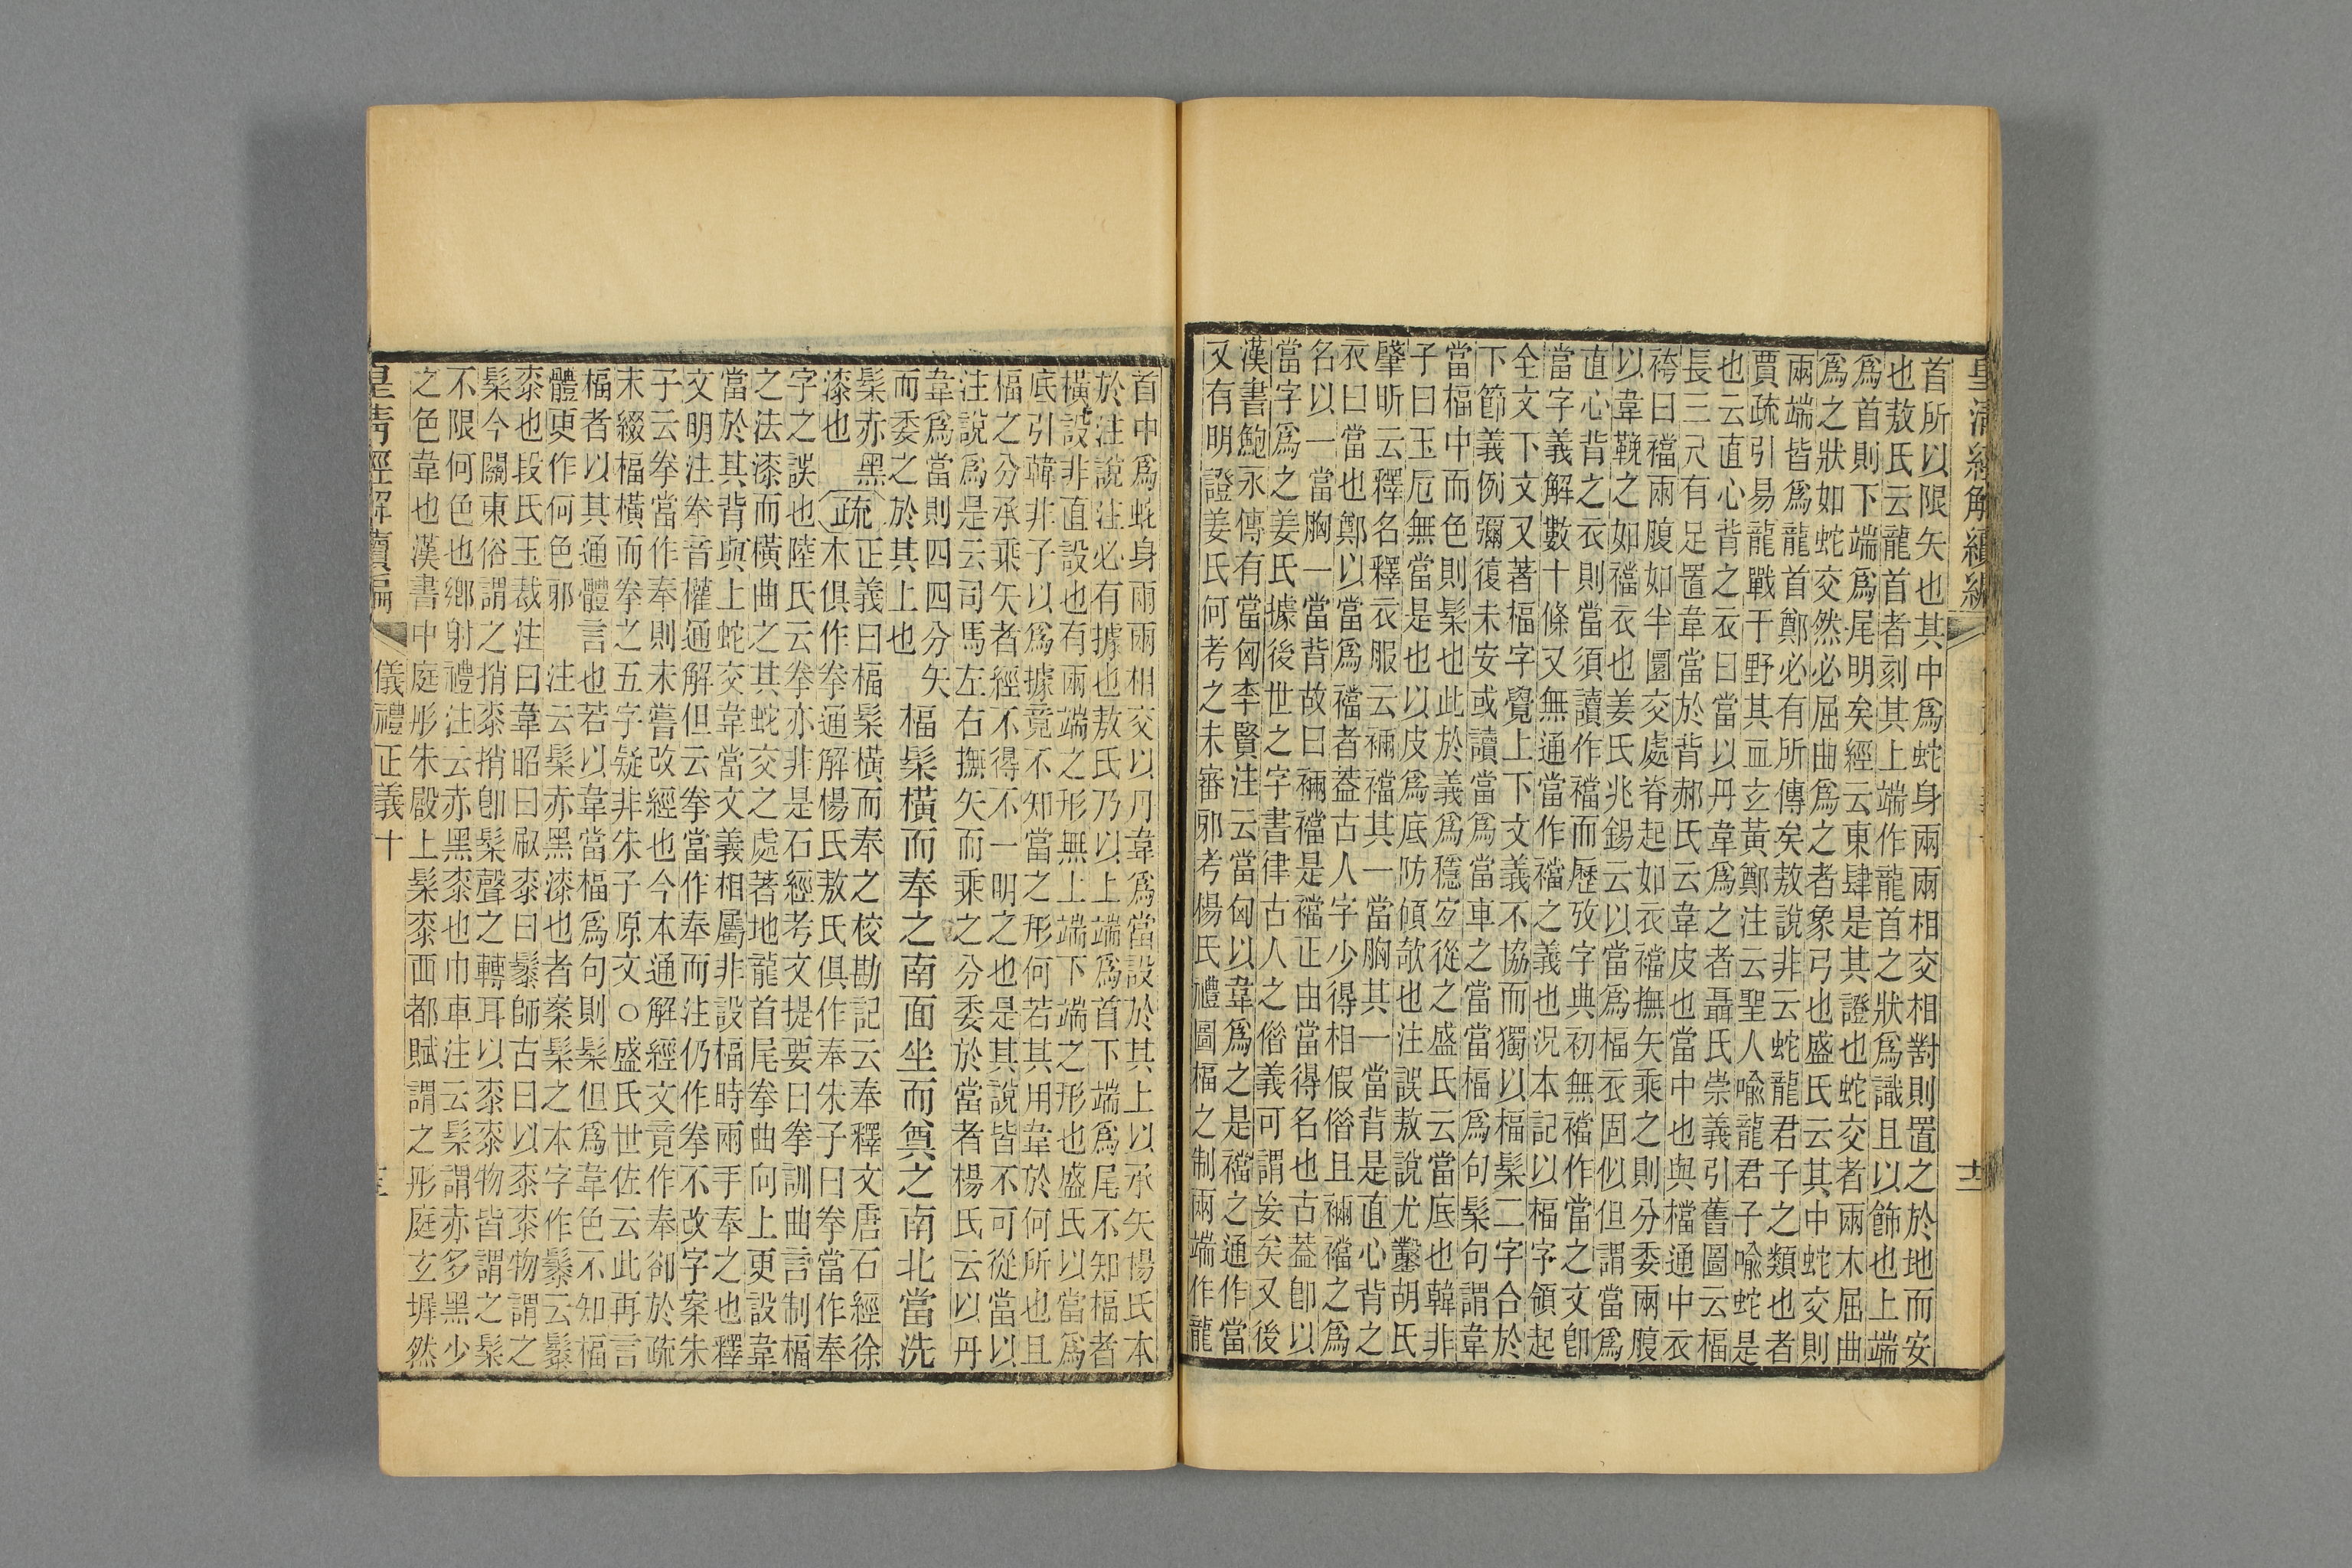 皇清經解續編
首所以限矢也其中爲蛇身兩兩相交相對則置之於地而安
也敖氏云龍首者刻其上端作龍首之狀爲識且以飾也上端
爲首則下端爲尾明矣經云東肆是其證也蛇交者兩木屈曲
爲之狀如蛇交然必屈曲爲之者象弓也盛氏云其中蛇交則
兩端皆爲龍首鄭必有所傳矣敖說非云蛇龍君子之類也者
賈疏引易龍戰于野其血玄黃鄭注云聖人喻龍君子喻蛇是
也云直心背之衣曰當以丹韋爲之者聶氏崇義引舊圖云楅
長三尺有足置韋當於背郝氏云韋皮也當中也與襠通中衣
袴曰襠兩腹如半圜交處脊起如衣襠撫矢乘之則分委兩腹
以韋鞔之如襠衣也姜氏兆錫云以當爲楅衣固似但謂當爲
直心背之衣則當須讀作襠而歷攷字典初無襠作當之文卽
當字義解數十條又無通當作襠之義也況本記以楅字領起
全文下文又著楅字覺上下文義不協而獨以楅髹二字合於
下節義例彌復未安或讀當爲當車之當當楅爲句髹句謂韋
當楅中而色則髹也此於義爲穩宓從之盛氏云當底也韓非
子曰玉卮無當是也以皮爲底防傾欹也注誤敖說尤鑿胡氏
肇昕云釋名釋衣服云裲襠其一當胸其一當背是直心背之
衣曰當也鄭以當爲襠者葢古人字少得相假借且裲襠之爲
名以一當胸一當背故曰裲襠是襠正由當得名也古葢卽以
當字爲之姜氏據後世之字書律古人之俗義可謂妄矣又後
漢書鮑永傳有當匈李賢注云當匈以韋爲之是襠之通作當
又有明證姜氏何考之未審邪考楊氏禮圖楅之制兩端作龍
首中爲蛇身兩兩相交以丹韋爲當設於其上以承矢楊氏本
於注說注必有據也敖氏乃以上端爲首下端爲尾不知楅者
橫設非直設也有兩端之形無上端下端之形也盛氏以當爲
底引韓非子以爲據竟不知當之形何若其用韋於何所也且
楅之分承乘矢者經不得不一明之也是其說皆不可從當以
注說爲是云司馬左右撫矢而乘之分委於當者楊氏云以丹
韋爲當則四四分矢
而委之於其上也 楅髹橫而奉之南面坐而奠之南北當洗
髹赤黑 疏 正義曰楅髹橫而奉之校勘記云奉釋文唐石經徐
漆也 正 本俱作拳通解楊氏敖氏俱作奉朱子曰拳當作奉
字之誤也陸氏云拳亦非是石經考文提要曰拳訓曲言制楅
之法漆而橫曲之其蛇交之處著地龍首尾拳曲向上更設韋
當於其背與上蛇交韋當文義相屬非設楅時兩手奉之也釋
文明注拳音權通解但云拳當作奉而注仍作拳不改字案朱
子云拳當作奉則未嘗改經也今本通解經文竟作奉卻於疏
末綴楅橫而拳之五字疑非朱子原文○盛氏世佐云此再言
楅者以其通體言也若以韋當楅爲句則髹但爲韋色不知楅
體更作何色邪 注云髹赤黑漆也者案髹之本字作䰍云䰍
桼也段氏玉裁注曰韋昭曰㕞桼曰䰍師古曰以桼桼物謂之
髹今關東俗謂之捎桼捎卽髹聲之轉耳以桼桼物皆謂之髹
不限何色也鄉射禮注云赤黑桼也巾車注云髹謂赤多黑少
之色韋也漢書中庭彤朱殿上髹桼西都賦謂之彤庭玄墀然
皇清經解續編 儀禮正義十